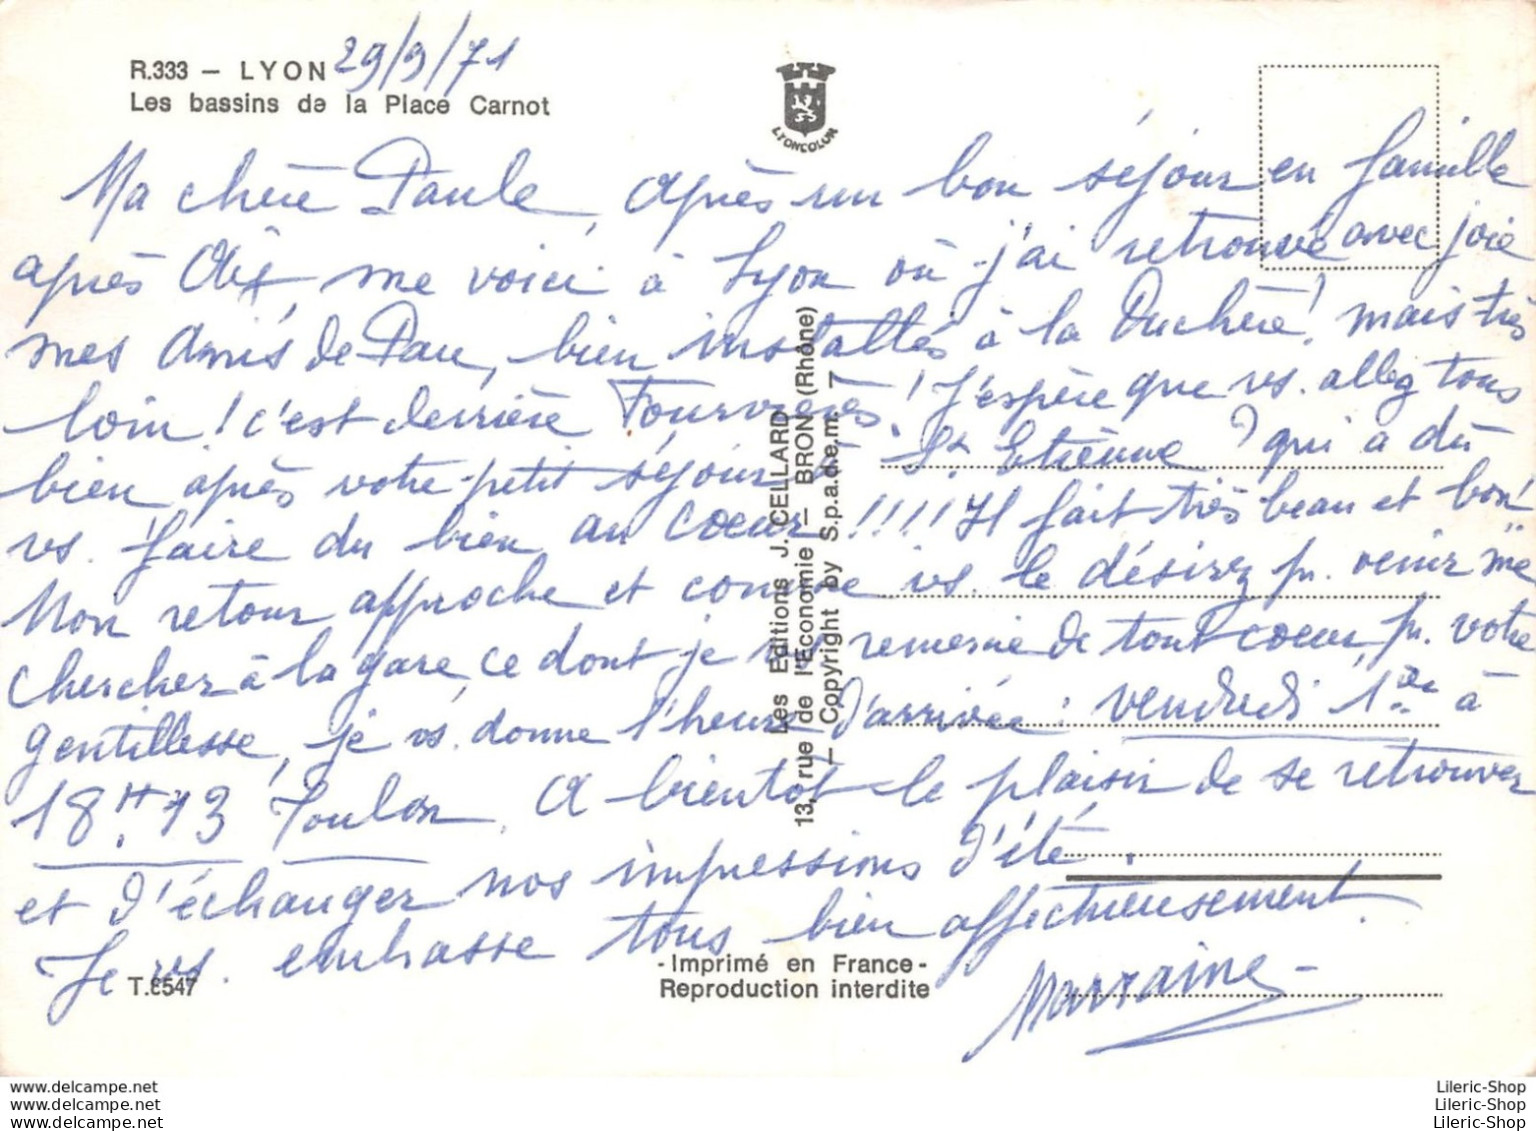 R.333 – LYON 29/9/71
Les bassins de la Place Carnot
LYONCOLOR
Ma chère Paule, après un bon séjour en famille
après Aix, me voici à Lyon où j'ai retrouvé avec joie
mes amis de Pau, bien installés à la Duchère! mais très
loin! c'est derrière Fourvières! J'espère que vs. allez tous
bien après votre petit séjour à St. Etienne qui a dû
vs. faire du bien au coeur!!!! Il fait très beau et bon!
Mon retour approche et comme vs. le désirez pr. venir me
chercher à la gare, ce dont je vs remercie de tout coeur pr. votre
gentillesse, je vs. donne l'heure d'arrivée : vendredi 1er à
18H.13 Toulon. A bientôt le plaisir de se retrouver
et d'échanger nos impressions d'été.
Je vs. embrasse tous bien affectueusement.
Marraine –
Les Editions J. CELLARD
13, rue de l'Economie – BRON (Rhône)
– Copyright by S.p.a.d.e.m. –
T.6547
- Imprimé en France -
Reproduction interdite
www.delcampe.net
www.delcampe.net
www.delcampe.net
Lileric-Shop
Lileric-Shop
Lileric-Shop